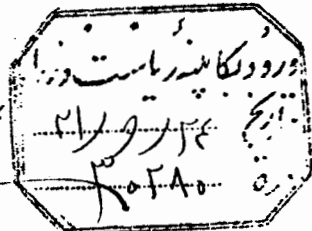 ورود بکابینه ریاست وزرا
تاریخ ۲۴ / ۹ / ۲۱
نمرة ۳۰۲۸۰